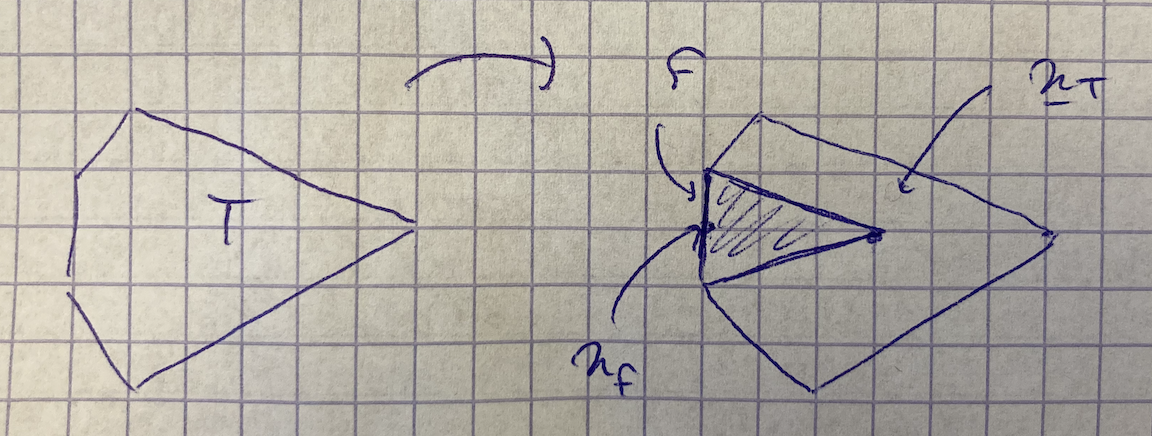 T
F
x_T
x_F